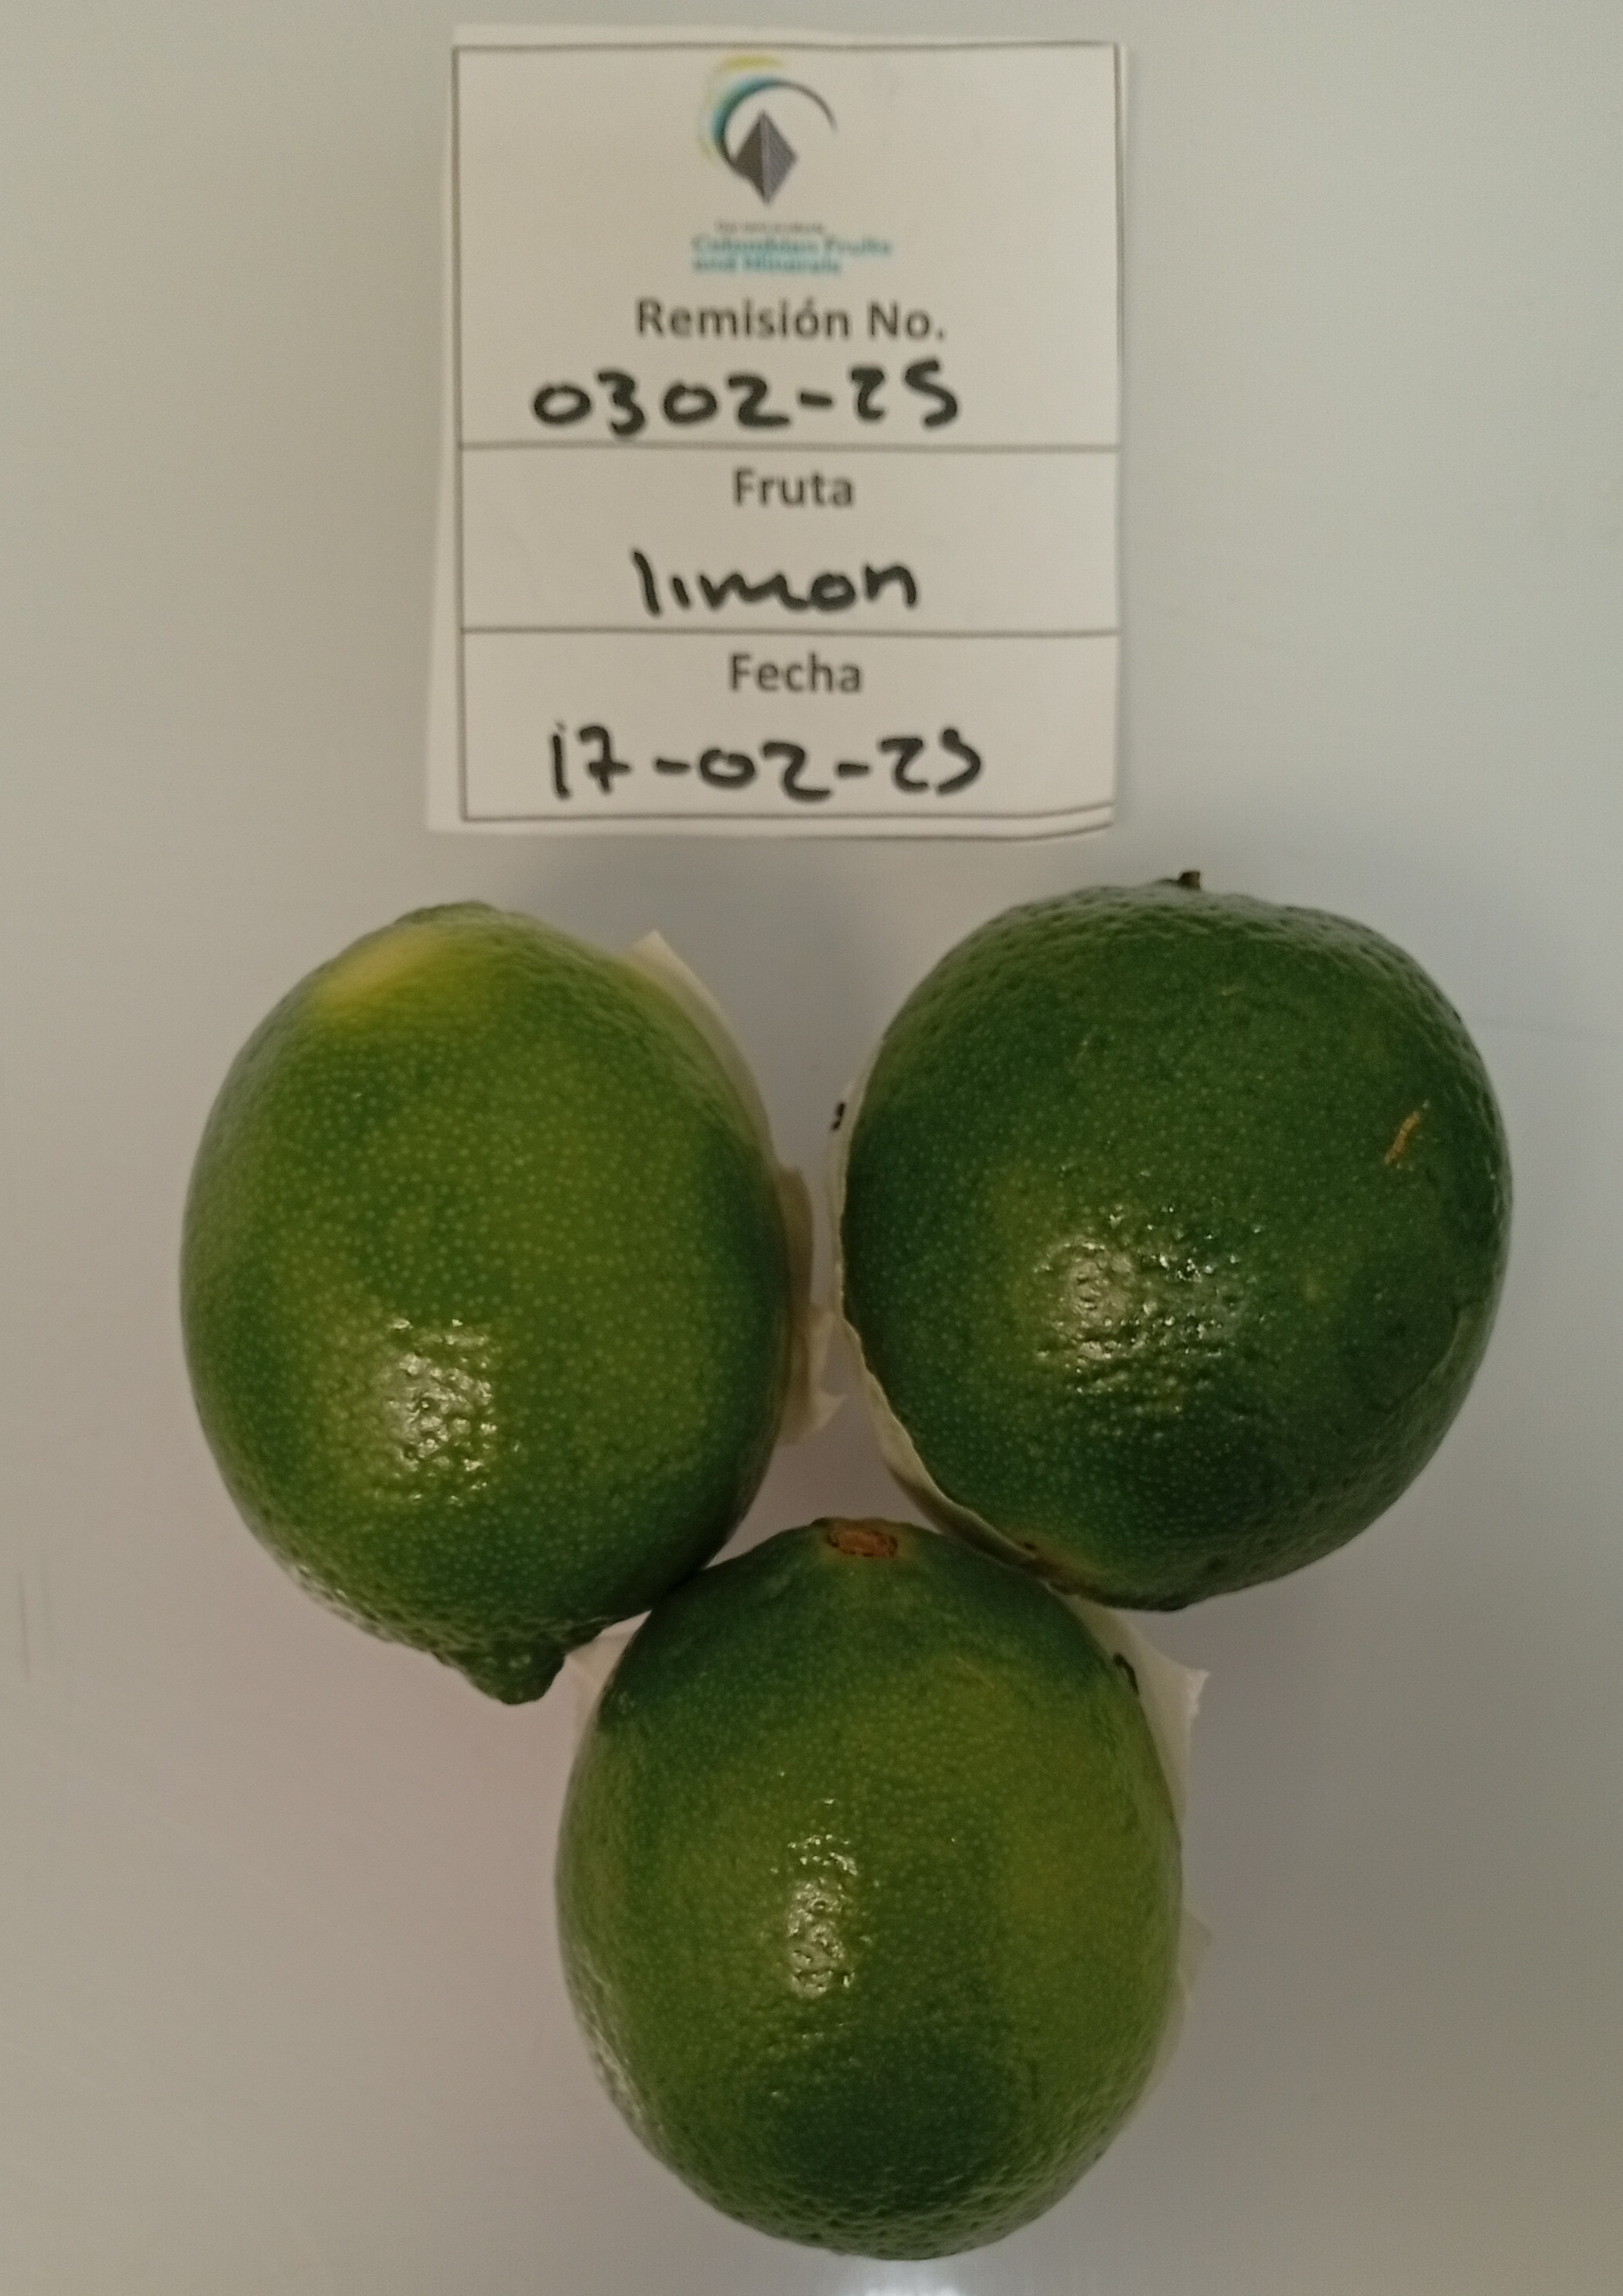 Colombian Fruits
and Minerals
Remisión No.
0302-25
Fruta
limon
Fecha
17-02-25